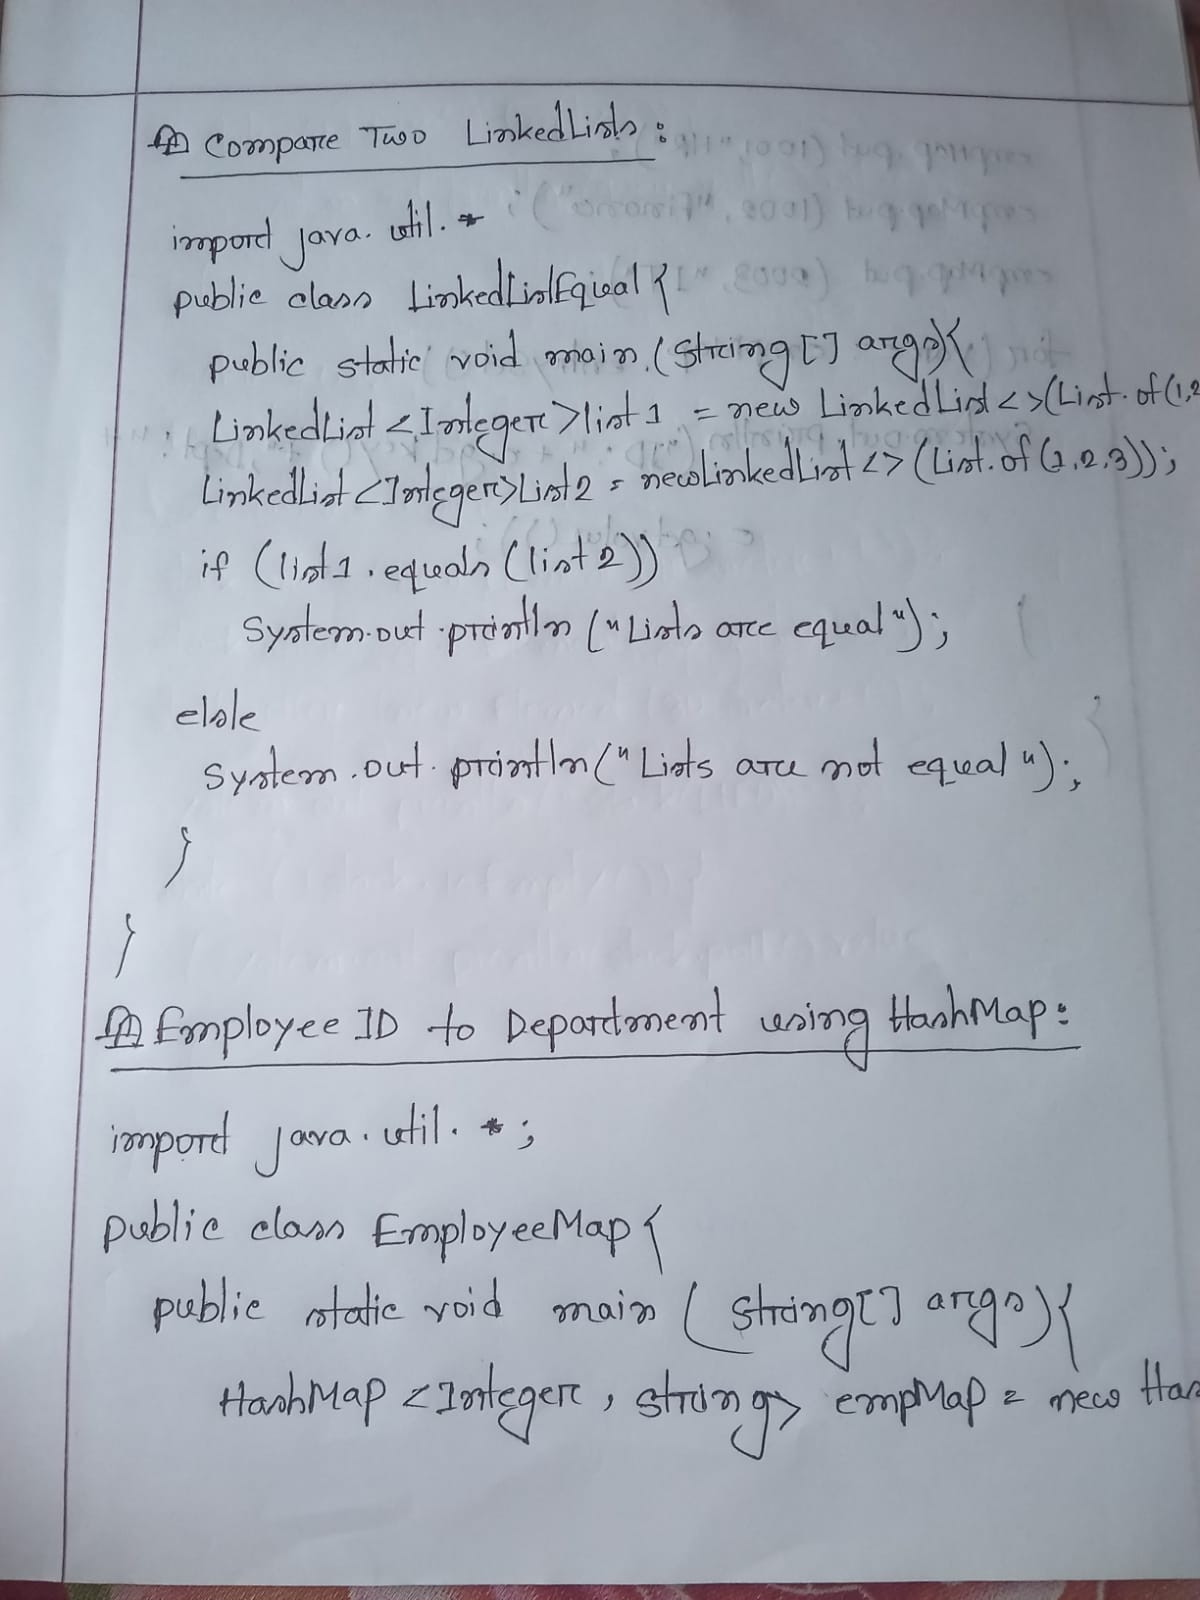 Compare Two LinkedLists:
import java.util.*
public class LinkedListEqual{
public static void main(String[] args){
LinkedList<Integer>list1 = new LinkedList<>(List.of(1,2
LinkedList<Integer>List2 = newLinkedList<>(List.of(1,2,3));
if (list1.equals(list2))
System.out.println("Lists are equal");
else
System.out.println("Lists are not equal");
}
}
Employee ID to Department using HashMap:
import java.util.*;
public class EmployeeMap{
public static void main(String[] args){
HashMap<Integer, String> empMap = new Has